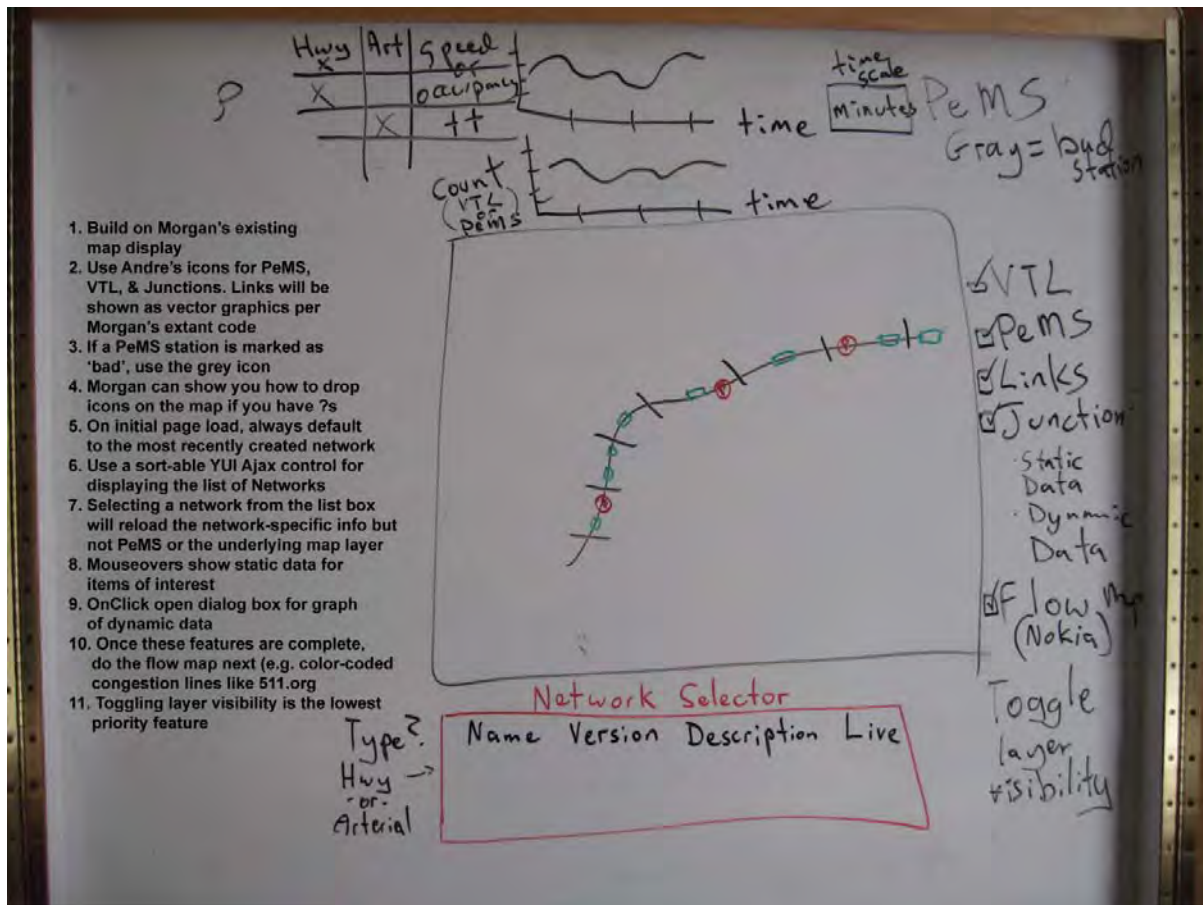 Hwy Art Speed
x or
X occupancy
X tt
time
time
scale
minutes
PeMS
Gray = bad
station
Count
(VTL
or
PeMS
time
1. Build on Morgan's existing
map display
2. Use Andre's icons for PeMS,
VTL, & Junctions. Links will be
shown as vector graphics per
Morgan's extant code
3. If a PeMS station is marked as
'bad', use the grey icon
4. Morgan can show you how to drop
icons on the map if you have ?s
5. On initial page load, always default
to the most recently created network
6. Use a sort-able YUI Ajax control for
displaying the list of Networks
7. Selecting a network from the list box
will reload the network-specific info but
not PeMS or the underlying map layer
8. Mouseovers show static data for
items of interest
9. OnClick open dialog box for graph
of dynamic data
10. Once these features are complete,
do the flow map next (e.g. color-coded
congestion lines like 511.org
11. Toggling layer visibility is the lowest
priority feature
VTL
PeMS
Links
Junction
· Static
Data
· Dynamic
Data
Flow Map
(Nokia)
Toggle
layer
visibility
Network Selector
Name Version Description Live
Type?
Hwy →
-or-
Arterial